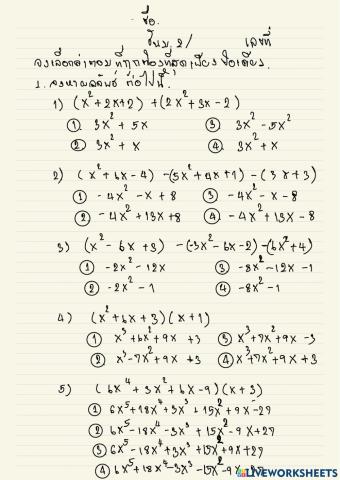 ชื่อ.
ชั้น ม.2/ เลขที่
จงเลือกคำตอบที่ถูกต้องที่สุดเพียงข้อเดียว.
1. จงหาผลลัพธ์ ต่อไปนี้.
1) (x²+2x+2) +(2x²+3x-2)
① 3x²+5x ③ 3x²-5x²
② 3x²+x ④ 3x²+x
2) (x²+6x-4) -(5x²+4x+1) -(3x+3)
① -4x²-x+8 ③ -4x²-x-8
② -4x²+13x+8 ④ -4x²+13x-8
3) (x²-6x+3) -(-3x²-6x-2)-(6x²+4)
① -2x²-12x ③ -8x²-12x-1
② -2x²-1 ④ -8x²-1
4) (x²+6x+3)(x+1)
① x³+6x²+9x+3 ③ x³+7x²+9x-3
② x³-7x²+9x+3 ④ x³+7x²+9x+3
5) (6x⁴+3x²+6x-9)(x+3)
① 6x⁵+18x⁴+3x³+15x²+9x-27
② 6x⁵+18x⁴-3x³+15x²-9x+27
③ 6x⁵-18x⁴+3x³+15x²+9x+27
④ 6x⁵+18x⁴-3x³-15x²-9x
LIVEWORKSHEETS